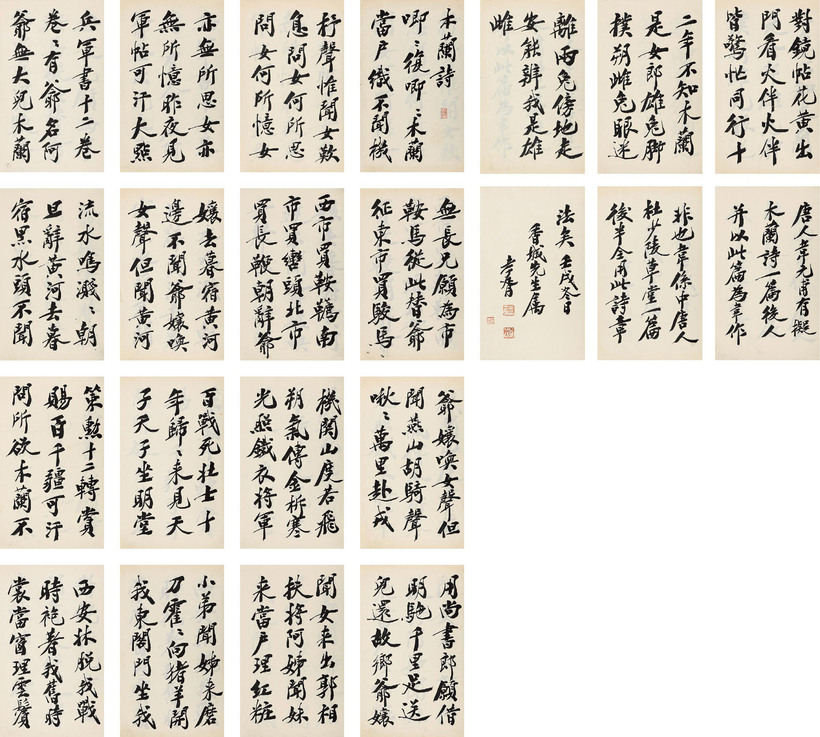 木蘭詩
唧〻復唧〻木蘭
當户織不聞機
杼聲惟聞女歎
息問女何所思
問女何所憶女
亦無所思女亦
無所憶昨夜見
軍帖可汗大點
兵軍書十二卷
卷〻有爺名阿
爺無大兒木蘭
無長兄願為市
鞍馬從此替爺
征東市買駿馬
西市買鞍韉南
市買轡頭北市
買長鞭朝辭爺
孃去暮宿黃河
邊不聞爺孃喚
女聲但聞黃河
流水鳴濺〻朝
旦辭黃河去暮
宿黑水頭不聞
爺孃喚女聲但
聞燕山胡騎聲
啾〻萬里赴戎
機關山度若飛
朔氣傳金柝寒
光照鐵衣將軍
百戰死壯士十
年歸〻来見天
子天子坐明堂
策勳十二轉賞
賜百千疆可汗
問所欲木蘭不
用尚書郎願借
明駞千里足送
兒還故鄉爺孃
聞女来出郭相
扶將阿姊聞妹
来當户理紅粧
小弟聞姊来磨
刀霍〻向猪羊開
我東閣門坐我
西安牀脱我戰
時袍著我舊時
裳當窗理雲鬢
對鏡帖花黃出
門看火伴火伴
皆驚忙同行十
二年不知木蘭
是女郎雄兔脚
撲朔雌兔眼迷
離兩兔傍地走
安能辨我是雄
雌
唐人韋元甫有擬
木蘭詩一篇後人
并以此篇為韋作
非也韋係中唐人
杜少陵草堂一篇
後半全用此詩章
法矣 壬戌冬日
香城先生属
孝胥